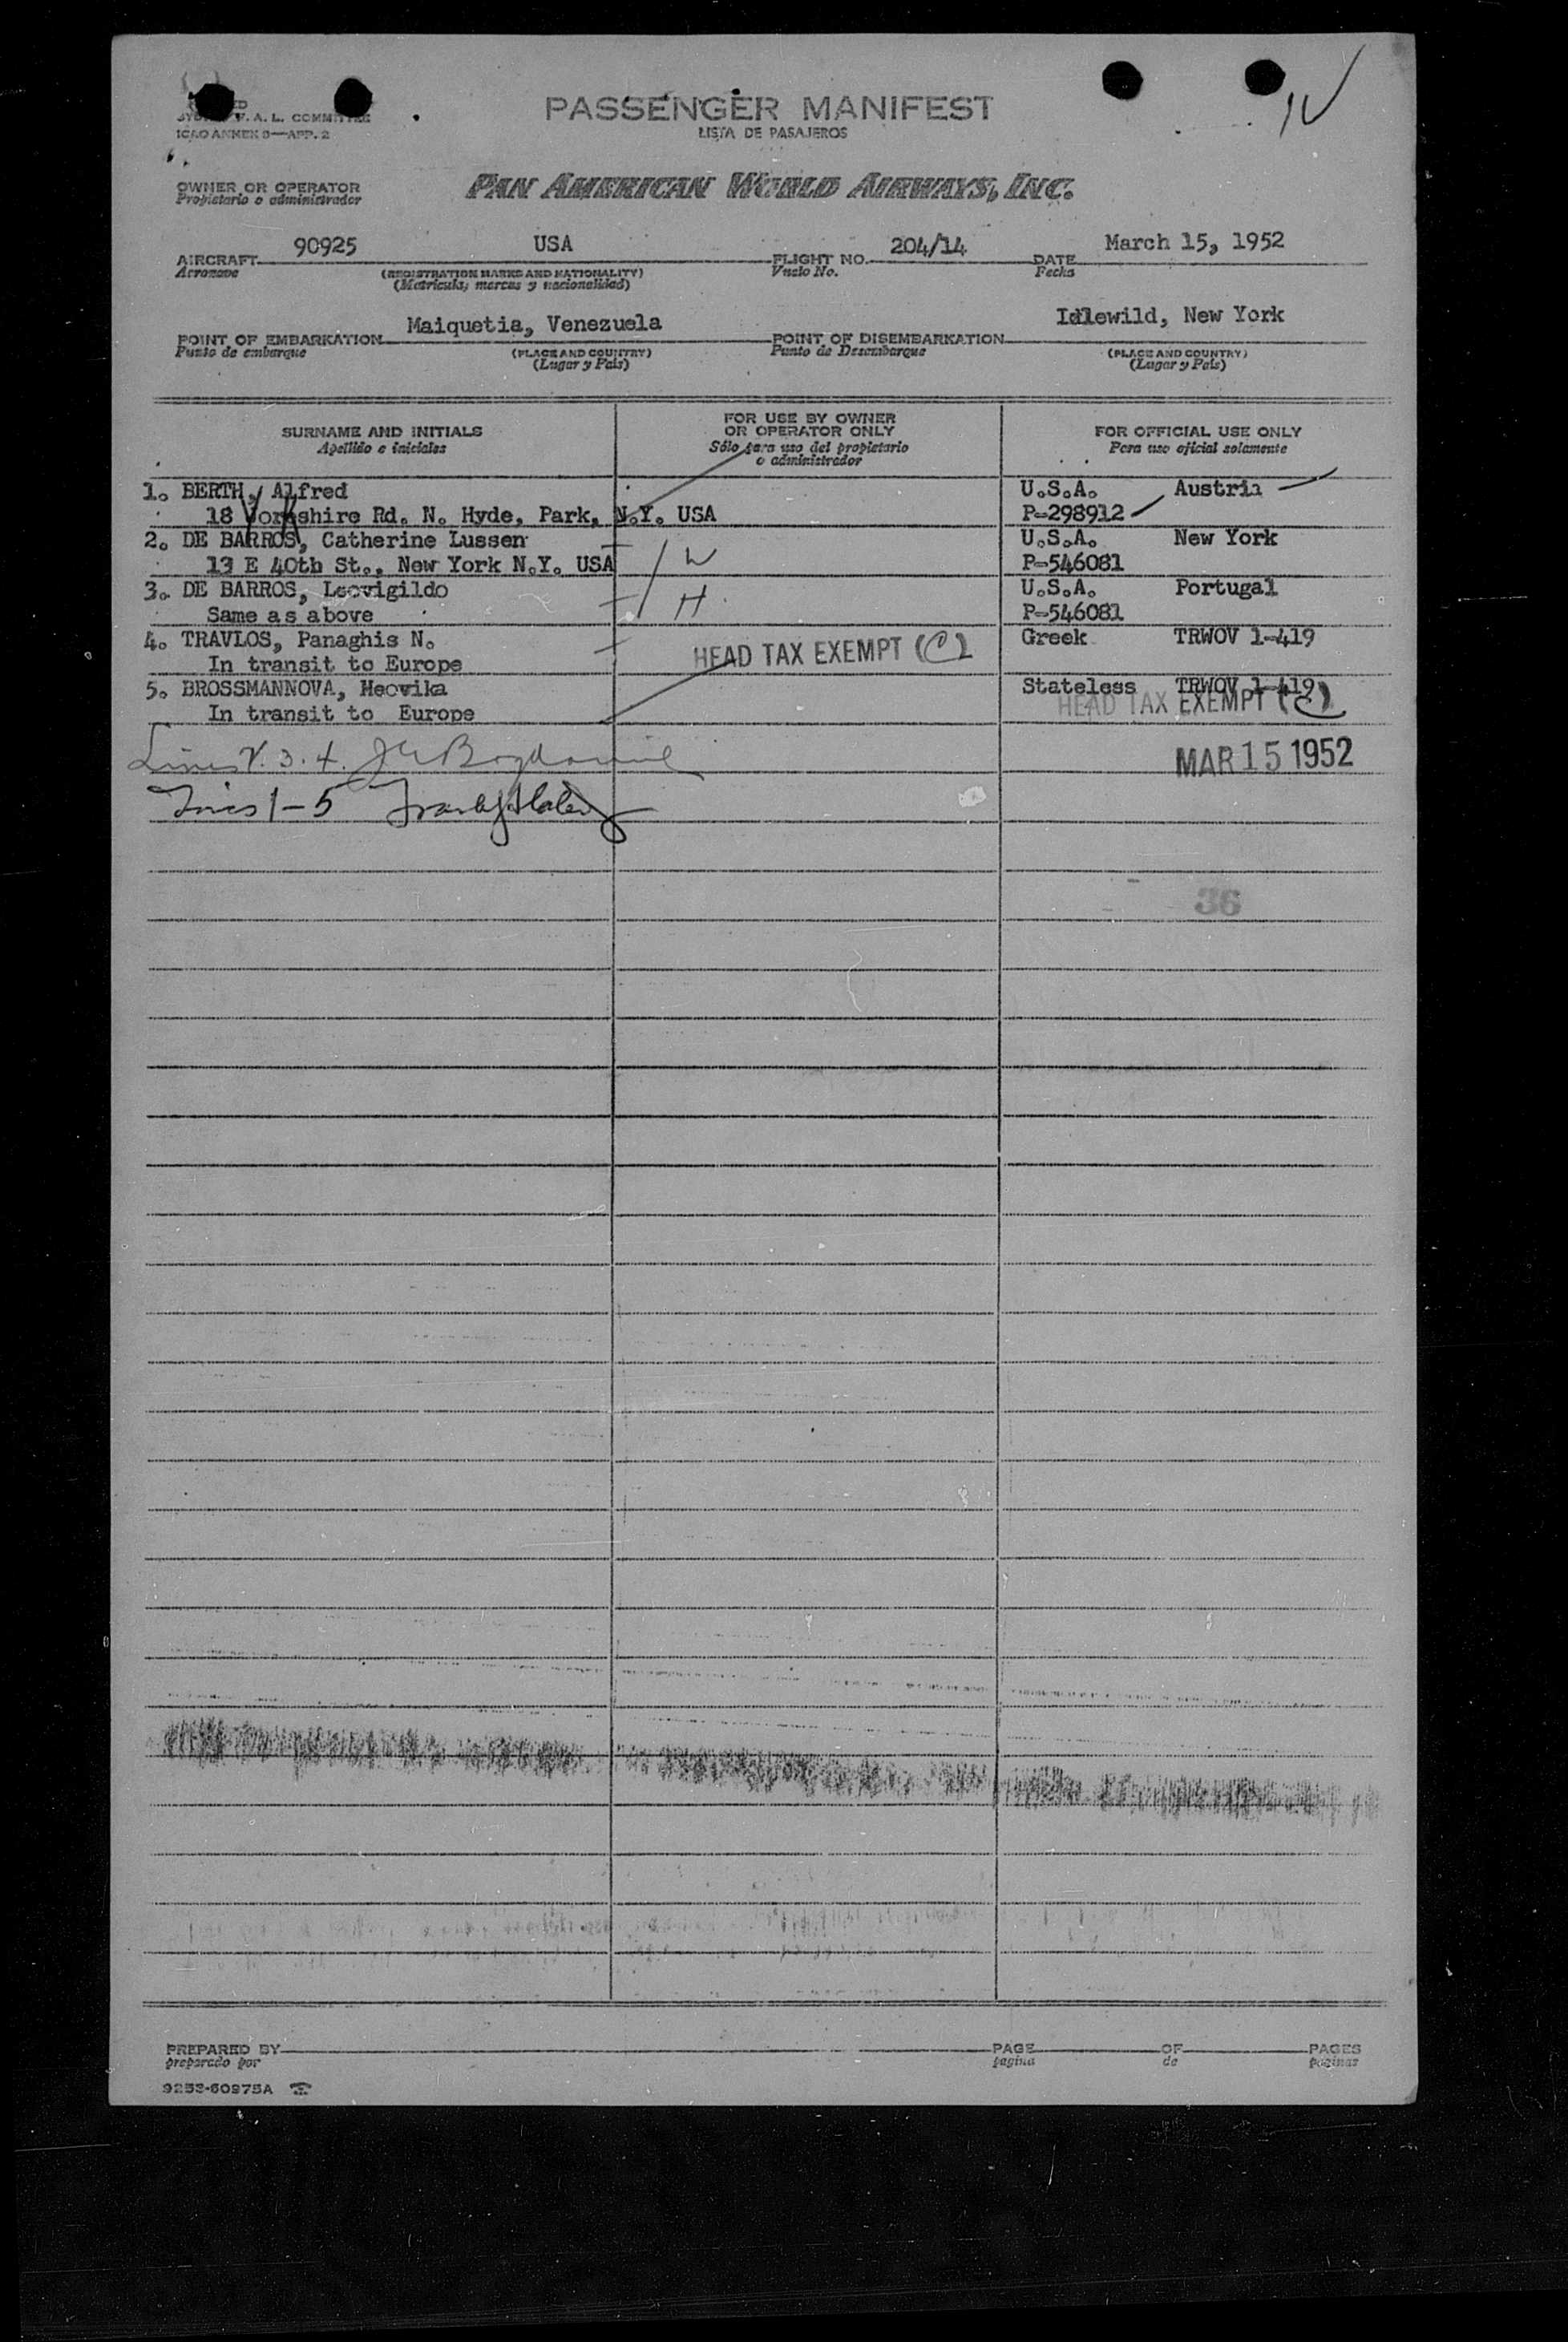 PASSENGER MANIFEST
LISTA DE PASAJEROS
F. A. L. COMMITTEE
ICAO ANNEX 9—APP. 2
OWNER OR OPERATOR
Propietario o administrador
PAN AMERICAN WORLD AIRWAYS, INC.
AIRCRAFT 90925 USA FLIGHT NO. 204/14 DATE March 15, 1952
Aeronave (REGISTRATION MARKS AND NATIONALITY) Vuelo No. Fecha
(Matricula, marcas y nacionalidad)
POINT OF EMBARKATION Maiquetia, Venezuela POINT OF DISEMBARKATION Idlewild, New York
Punto de embarque (PLACE AND COUNTRY) Punto de Desembarque (PLACE AND COUNTRY)
(Lugar y País) (Lugar y País)
SURNAME AND INITIALS
Apellido e iniciales
FOR USE BY OWNER
OR OPERATOR ONLY
Sólo para uso del propietario
o administrador
FOR OFFICIAL USE ONLY
Para uso oficial solamente
1. BERTH, Alfred U.S.A. Austria
18 Yorkshire Rd. N. Hyde, Park, N.Y. USA P-298912
2. DE BARROS, Catherine Lussen U.S.A. New York
13 E 40th St., New York N.Y. USA W P-546081
3. DE BARROS, Leovigildo U.S.A. Portugal
Same as above H P-546081
4. TRAVLOS, Panaghis N. Greek TRWOV 1-419
In transit to Europe HEAD TAX EXEMPT (C)
5. BROSSMANNOVA, Hecvika Stateless TRWOV 1-419
In transit to Europe HEAD TAX EXEMPT (C)
Lines 2. 3. 4.
MAR 15 1952
Lines 1-5
36
PREPARED BY PAGE OF PAGES
preparado por pagina de paginas
9253-60975A